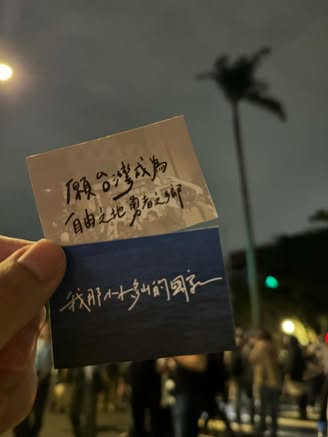 願台灣成為
自由之地勇者之鄉
我那小小多山的國家